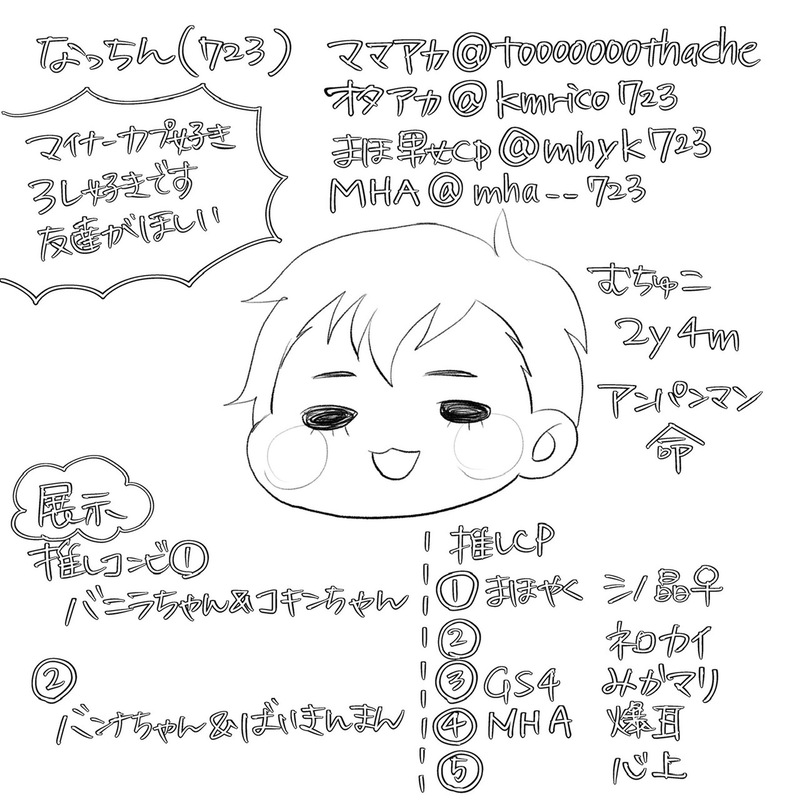 なっちん(723)
ママアカ@toooooothache
オタアカ@kmrico723
まほ男女CP@mhyk723
MHA@mha--723
マイナーカプ好き
ろし好きです
友達がほしい
むちゅこ
2y4m
アンパンマン
命
展示
推しコンビ①
バニラちゃん&コキンちゃん
②
バンナちゃん&ばいきんまん
推しCP
①まほやく シノ晶♀
② ネロカイ
③GS4 みかマリ
④MHA 爆耳
⑤ 心上